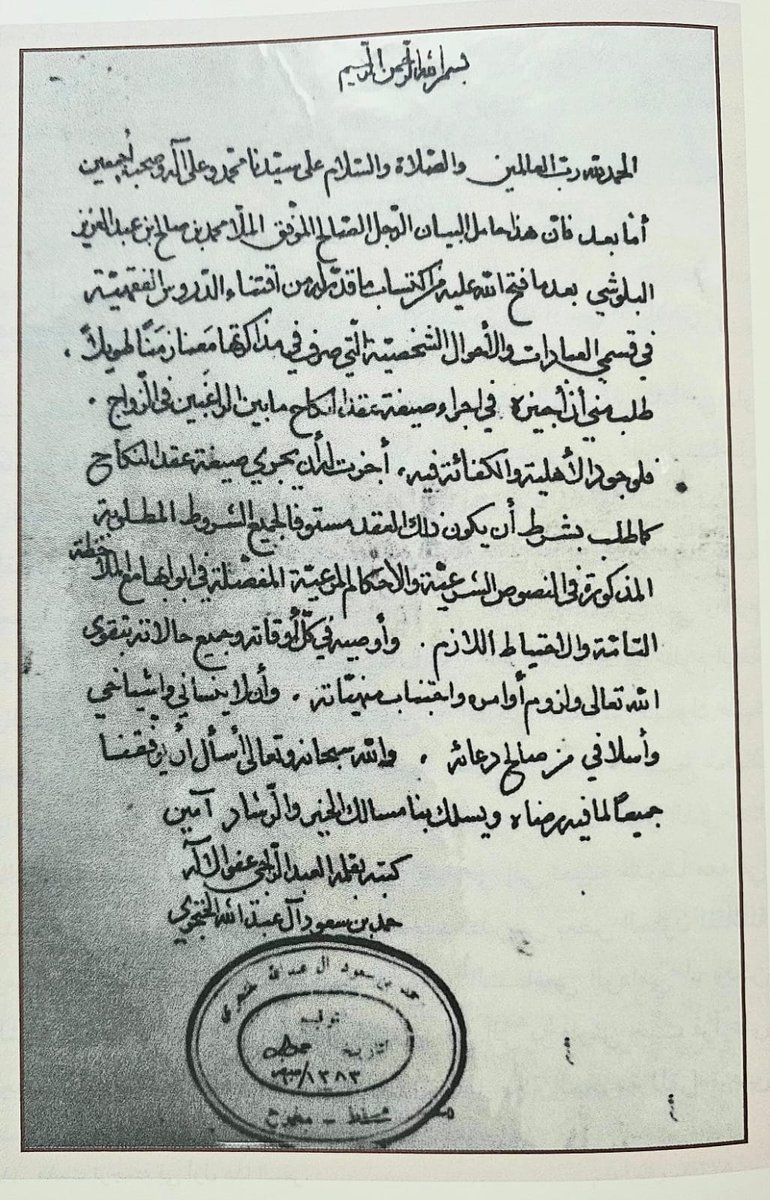 بسم الله الرحمن الرحيم
الحمد لله رب العالمين والصلاة والسلام على سيدنا محمد وعلى آله وصحبه أجمعين
أما بعد فإن هذا حامل البيان الرجل الصالح الموفق الملا محمد بن صالح بن عبد العزيز
البلوشي بعد ما فتح الله عليه من اكتساب ما قدر له من اقتناء الدروس الفقهية
في قسمي العبادات والأحوال الشخصية التي صرف في مذاكرتها معنا زمنًا طويلاً .
طلب مني أن أجيزه في اجراء صيغة عقد انكاح ما بين الراغبين في الزواج .
فلوجود الأهلية والكفائة فيه . أجزت له أن يجري صيغة عقد النكاح
كما طلب بشرط أن يكون ذلك العقد مستوفا لجميع الشروط المطلوبة
المذكورة في النصوص الشرعية والأحكام المرعية المفصلة في ابوابها مع الملاحظة
التامة والاحتياط اللازم . وأوصيه في كل أوقاته وجميع حالاته بتقوى
الله تعالى ولزوم أوامره واجتناب منهياته . وأن لا ينساني وإشياخي
وأسلافي من صالح دعائه . والله سبحانه وتعالى أسأل أن يوفقنا
جميعًا لما فيه رضاه ويسلك بنا مسالك الخير والرشاد آمين
كتبه بقلمه العبد الراجي عفو الإله
حمد بن سعود آل عبد الله الخنجري
حمد بن سعود آل عبد الله خنجري
تاريخ
١٣٨٣
مسقط -